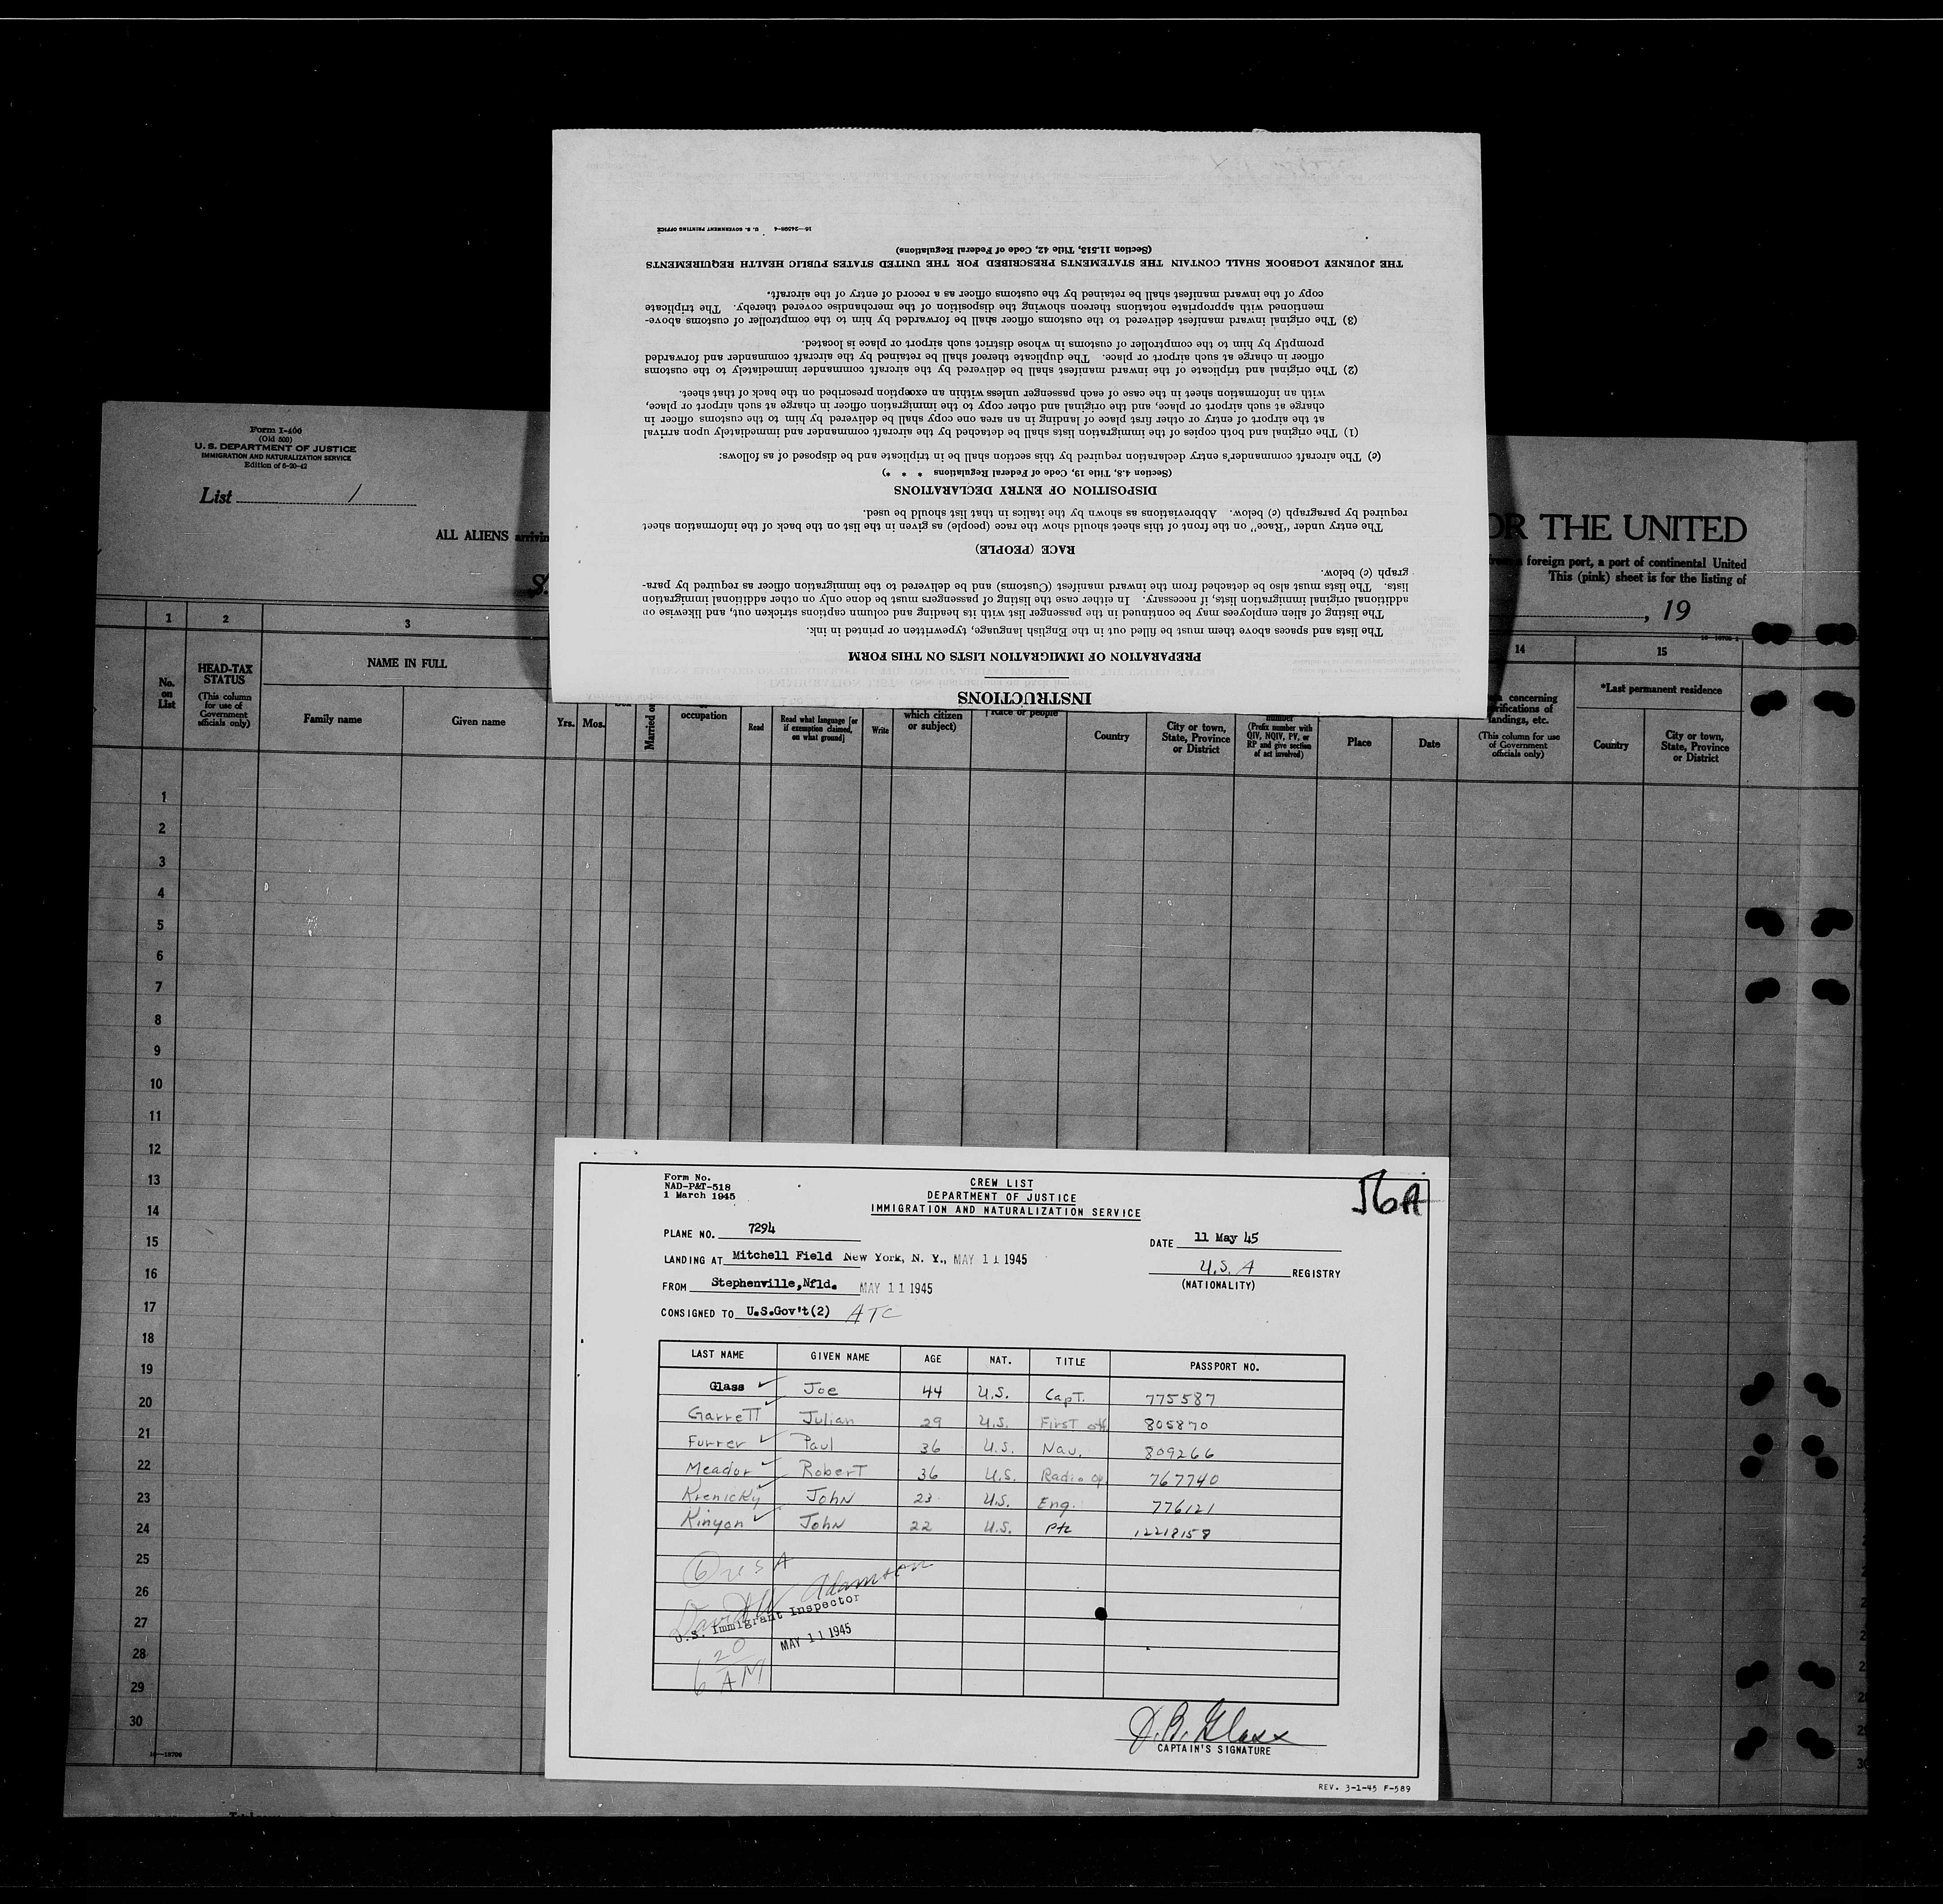 INSTRUCTIONS
PREPARATION OF IMMIGRATION LISTS ON THIS FORM
The lists and spaces above them must be filled out in the English language, typewritten or printed in ink.
The listing of alien employees may be continued in the passenger list with its heading and column captions stricken out, and likewise on
additional original immigration lists, if necessary. In either case the listing of passengers must be done only on other additional immigration
lists. The lists must also be detached from the inward manifest (Customs) and be delivered to the immigration officer as required by para-
graph (c) below.
RACE (PEOPLE)
The entry under "Race" on the front of this sheet should show the race (people) as given in the list on the back of the information sheet
required by paragraph (c) below. Abbreviations as shown by the italics in that list should be used.
DISPOSITION OF ENTRY DECLARATIONS
(Section 4.8, Title 19, Code of Federal Regulations * * *)
(c) The aircraft commander's entry declaration required by this section shall be in triplicate and be disposed of as follows:
(1) The original and both copies of the immigration lists shall be detached by the aircraft commander and immediately upon arrival
at the airport of entry or other first place of landing in an area one copy shall be delivered by him to the customs officer in
charge at such airport or place, and the original and other copy to the immigration officer in charge at such airport or place,
with an information sheet in the case of each passenger unless within an exception prescribed on the back of that sheet.
(2) The original and triplicate of the inward manifest shall be delivered by the aircraft commander immediately to the customs
officer in charge at such airport or place. The duplicate thereof shall be retained by the aircraft commander and forwarded
promptly by him to the comptroller of customs in whose district such airport or place is located.
(3) The original inward manifest delivered to the customs officer shall be forwarded by him to the comptroller of customs above-
mentioned with appropriate notations thereon showing the disposition of the merchandise covered thereby. The triplicate
copy of the inward manifest shall be retained by the customs officer as a record of entry of the aircraft.
THE JOURNEY LOGBOOK SHALL CONTAIN THE STATEMENTS PRESCRIBED FOR THE UNITED STATES PUBLIC HEALTH REQUIREMENTS
(Section 11.513, Title 42, Code of Federal Regulations)
16—24598-4 U. S. GOVERNMENT PRINTING OFFICE
Form I-400
(Old 500)
U. S. DEPARTMENT OF JUSTICE
IMMIGRATION AND NATURALIZATION SERVICE
Edition of 6-20-42
List 1
ALL ALIENS arrivin
S.
OR THE UNITED
foreign port, a port of continental United
This (pink) sheet is for the listing of
, 19
1 2 3 14 15
No. on List
HEAD-TAX STATUS
(This column for use of Government officials only)
NAME IN FULL
Family name Given name
Yrs. Mos.
Married or
occupation
Read
Read what language [or if exemption claimed, on what ground]
Write
which citizen or subject)
Race or people
Country
City or town, State, Province or District
number
(Prefix number with QIV, NQIV, PV, or RP and give section of act involved)
Place Date
concerning
verifications of
landings, etc.
(This column for use of Government officials only)
*Last permanent residence
Country
City or town, State, Province or District
1
2
3
4
5
6
7
8
9
10
11
12
13
14
15
16
17
18
19
20
21
22
23
24
25
26
27
28
29
30
16—18706
Form No.
NAD-P&T-518
1 March 1945
CREW LIST
DEPARTMENT OF JUSTICE
IMMIGRATION AND NATURALIZATION SERVICE
56A
PLANE NO. 7294
DATE 11 May 45
LANDING AT Mitchell Field New York, N. Y., MAY 11 1945
U.S.A REGISTRY
(NATIONALITY)
FROM Stephenville,Nfld. MAY 11 1945
CONSIGNED TO U.S.Gov't(2) ATC
LAST NAME GIVEN NAME AGE NAT. TITLE PASSPORT NO.
Glass Joe 44 U.S. Capt. 775587
Garrett Julian 29 U.S. First off 805870
Furrer Paul 36 U.S. Nav. 809266
Meador Robert 36 U.S. Radio op 767740
Krenicky John 23 U.S. Eng. 776121
Kinyon John 22 U.S. Pfc 12218158
6 USA
David W Adamson
U.S. Immigrant Inspector
MAY 11 1945
6 20 AM
J.B. Glass
CAPTAIN'S SIGNATURE
REV. 3-1-45 F-589